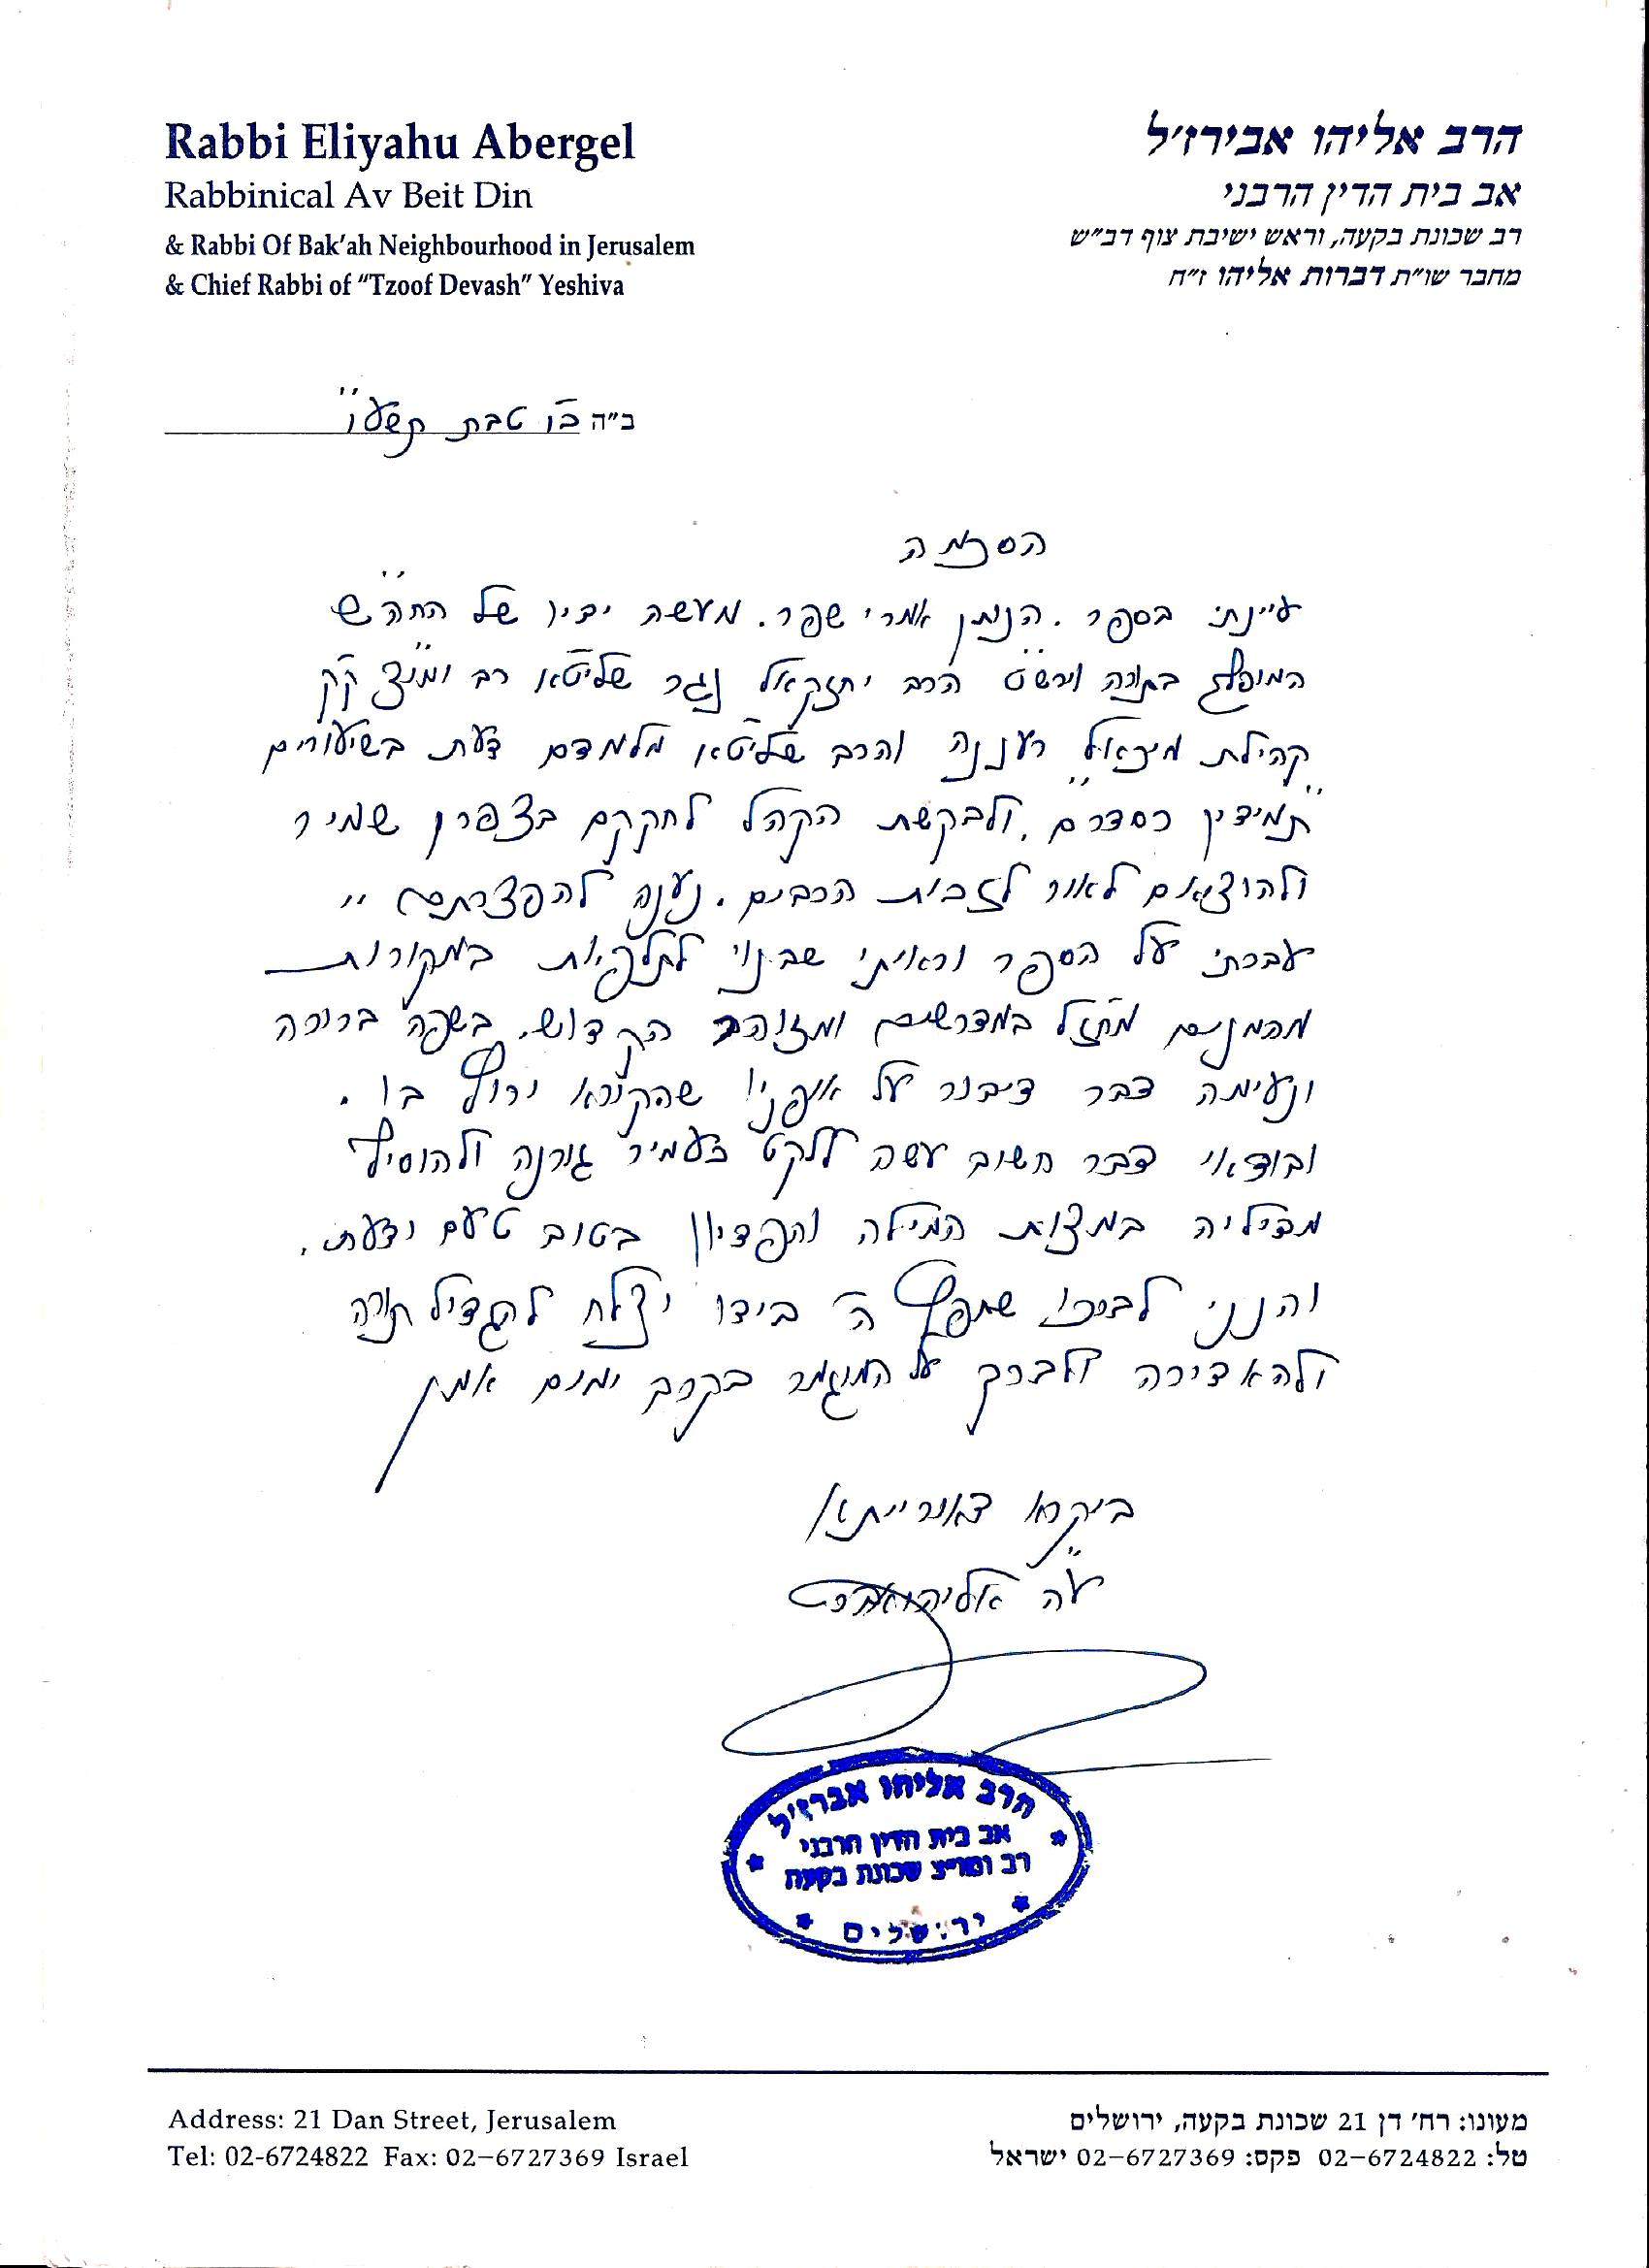 Rabbi Eliyahu Abergel
Rabbinical Av Beit Din
& Rabbi Of Bak'ah Neighbourhood in Jerusalem
& Chief Rabbi of "Tzoof Devash" Yeshiva
הרב אליהו אבירז'ל
אב בית הדין הרבני
רב שכונת בקעה, וראש ישיבת צוף דב"ש
מחבר שו"ת דברות אליהו ז"ח
ב"ה כו טבת תשע"ו
הסכמה
עיינתי בספר . הנותן אמרי שפר . מעשה ידיו של החה"ש
המופלג בתורה ויר"ש הרב יחזקאל נגר שליט"א רב ומו"צ ק"ק
קהילת מיכאל רעננה והרב שליט"א מלמדם דעת בשיעורים
תמידין כסדרם, ולבקשת הקהל לחקקם בצפרן שמיר
ולהוציאם לאור לזכות הרבים . נענה להפצרתם
עברתי על הספר וראיתי שבנוי לתלפיות במקורות
מהמנים מחז"ל במדרשים ומזוהר הקדוש, בשפה ברורה
ונעימה דבר דיבור על אופניו שהקורא ירוץ בו .
ובודאי דבר חשוב עשה ללקט כעמיר גורנה ולהוסיף
מדיליה במצות המילה והפדיון בטוב טעם ודעת.
והנני לברכו שחפץ ה' בידו יצלח להגדיל תורה
ולהאדירה ולברך על המוגמר בקרב ימים אמן
ביקרא דאורייתא
ע"ה אליהו
הרב אליהו אברז'ל
אב בית הדין הרבני
רב ומו"צ שכונת בקעה
ירושלים
Address: 21 Dan Street, Jerusalem
Tel: 02-6724822 Fax: 02-6727369 Israel
מעונו: רח' דן 21 שכונת בקעה, ירושלים
טל: 02-6724822 פקס: 02-6727369 ישראל